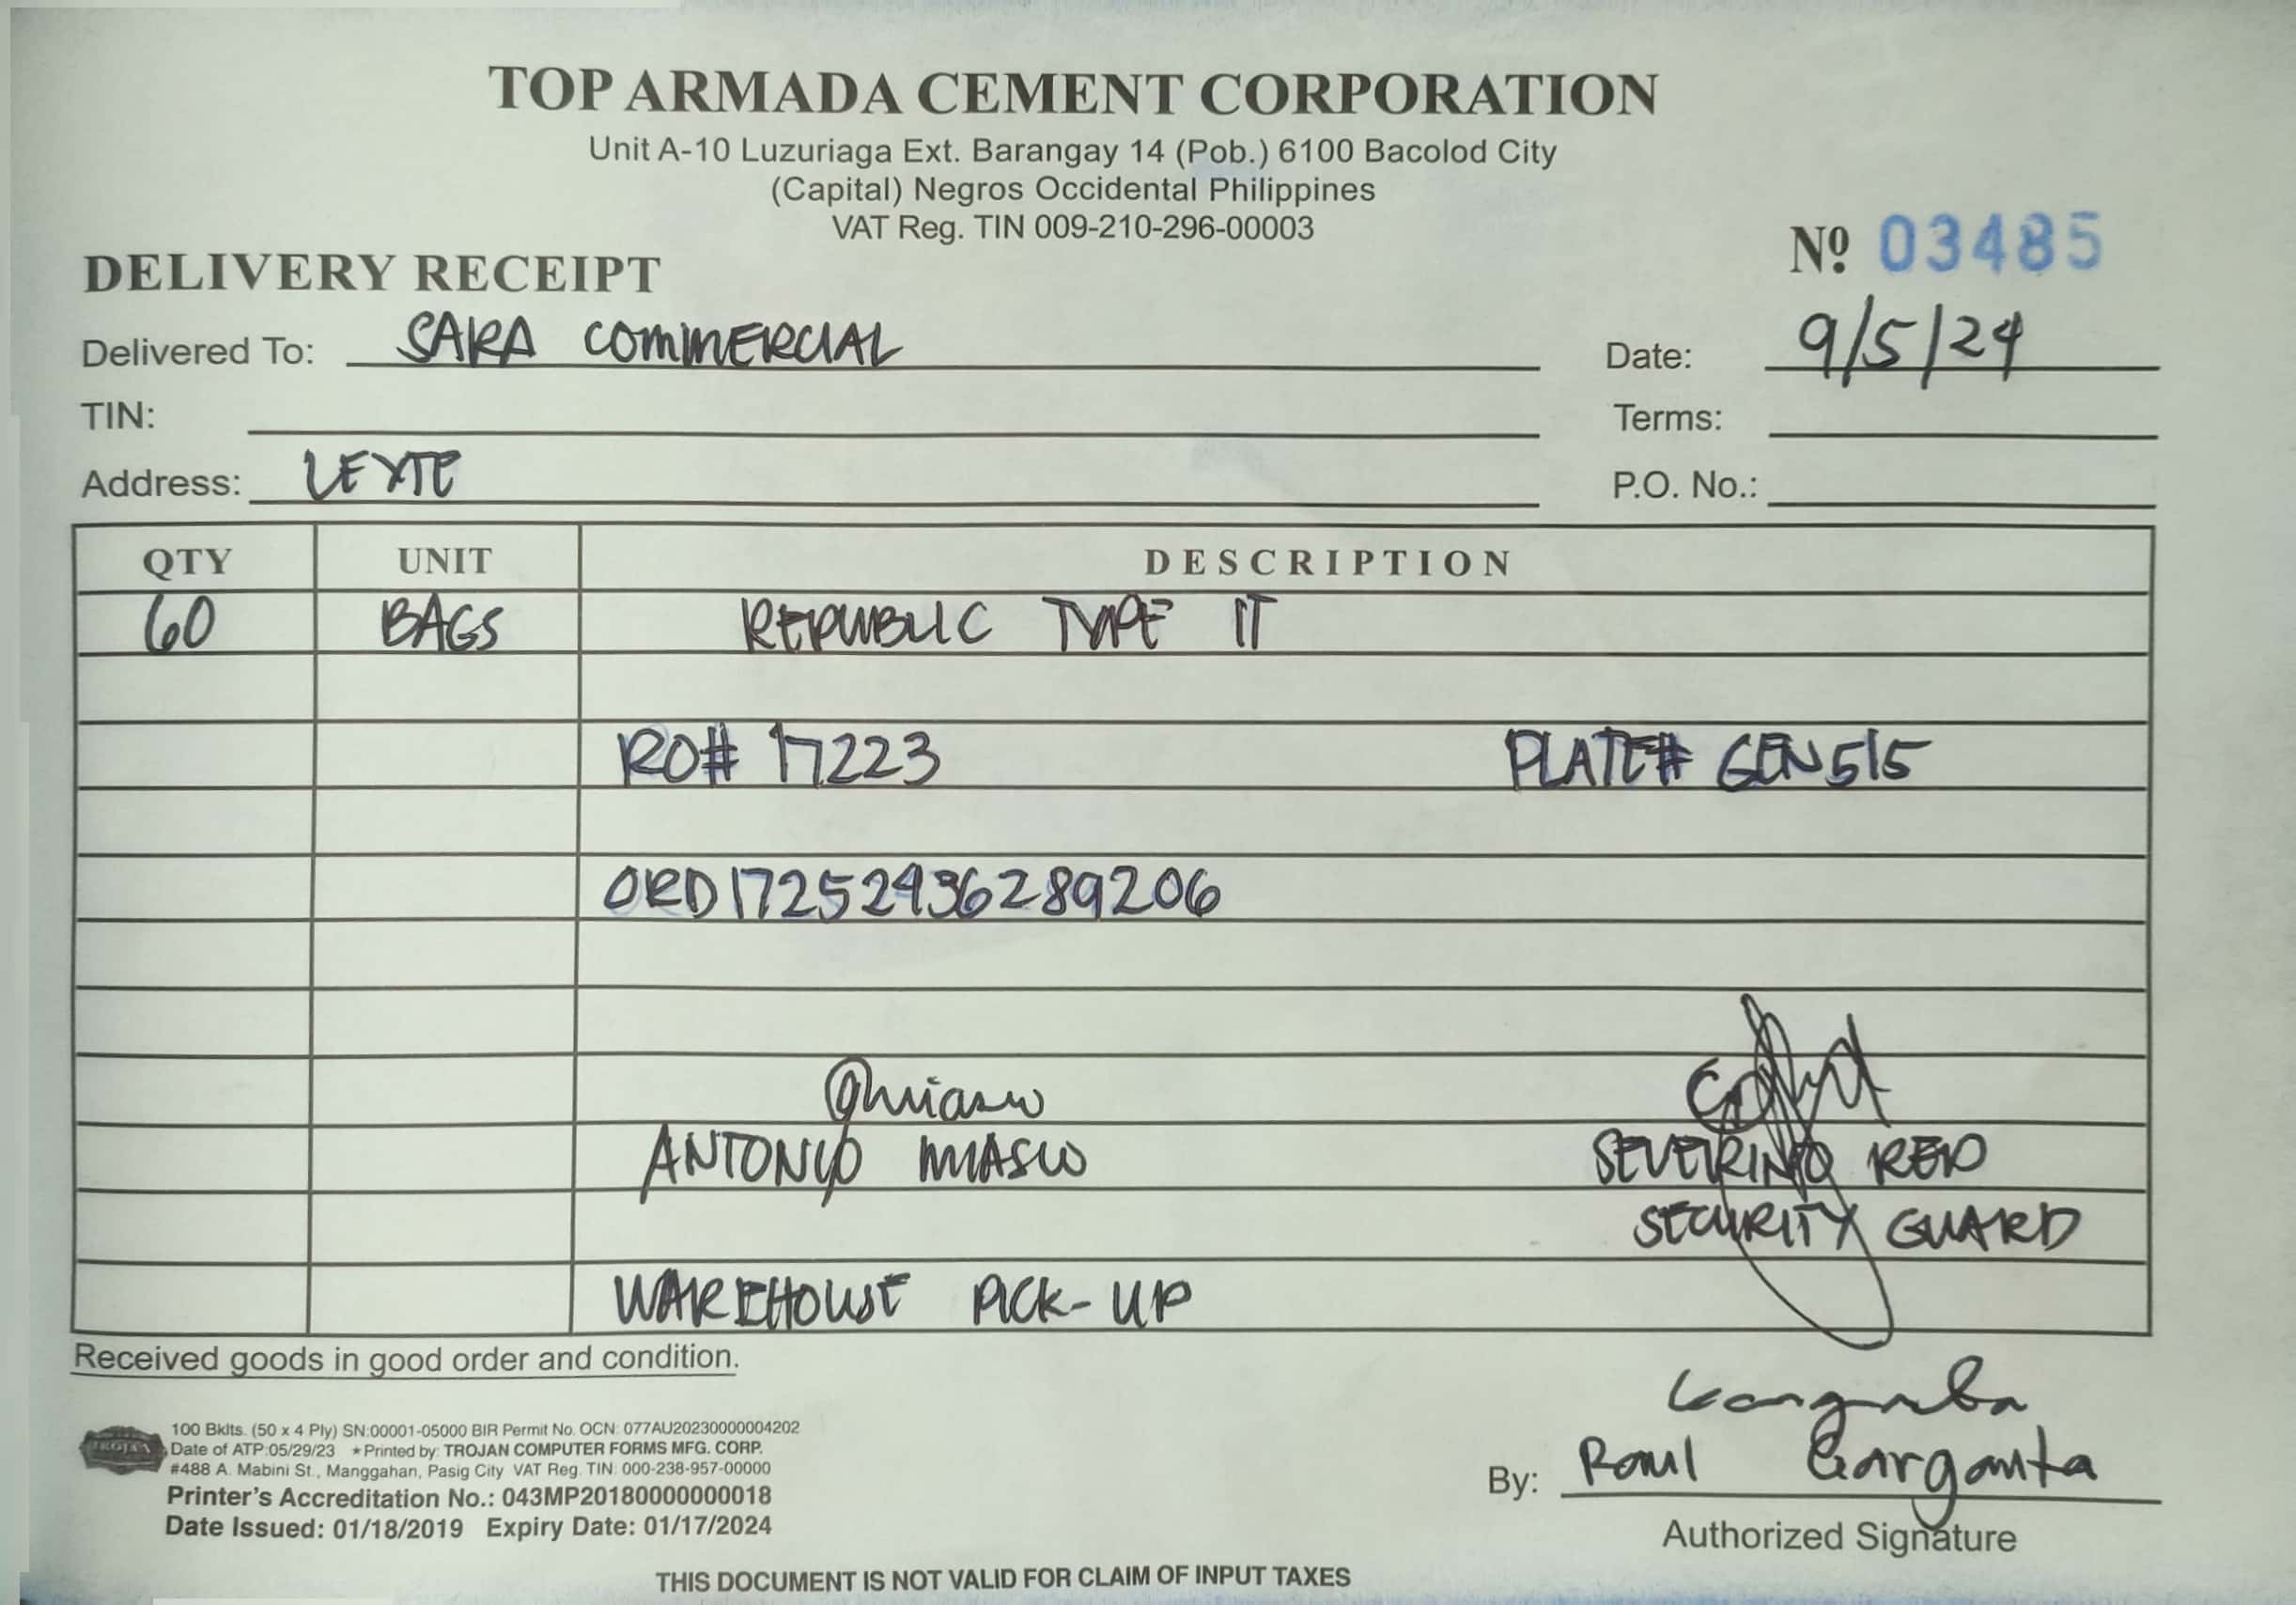 TOP ARMADA CEMENT CORPORATION
Unit A-10 Luzuriaga Ext. Barangay 14 (Pob.) 6100 Bacolod City
(Capital) Negros Occidental Philippines
VAT Reg. TIN 009-210-296-00003
DELIVERY RECEIPT
Nº 03485
Delivered To: SARA COMMERCIAL
Date: 9/5/24
TIN:
Terms:
Address: LEYTE
P.O. No.:
QTY UNIT DESCRIPTION
60 BAGS REPUBLIC TYPE IT
RO# 17223 PLATE# GEN515
ORD172529436289206
ANTONIO MIASCO SEVERINO
SECURITY GUARD
WAREHOUSE PICK-UP
Received goods in good order and condition.
TROJAN
100 Bklts. (50 x 4 Ply) SN:00001-05000 BIR Permit No. OCN: 077AU20230000004202
Date of ATP:05/29/23 ★Printed by: TROJAN COMPUTER FORMS MFG. CORP.
#488 A. Mabini St., Manggahan, Pasig City VAT Reg. TIN: 000-238-957-00000
Printer's Accreditation No.: 043MP20180000000018
Date Issued: 01/18/2019 Expiry Date: 01/17/2024
By: Raul Garganta
Authorized Signature
THIS DOCUMENT IS NOT VALID FOR CLAIM OF INPUT TAXES